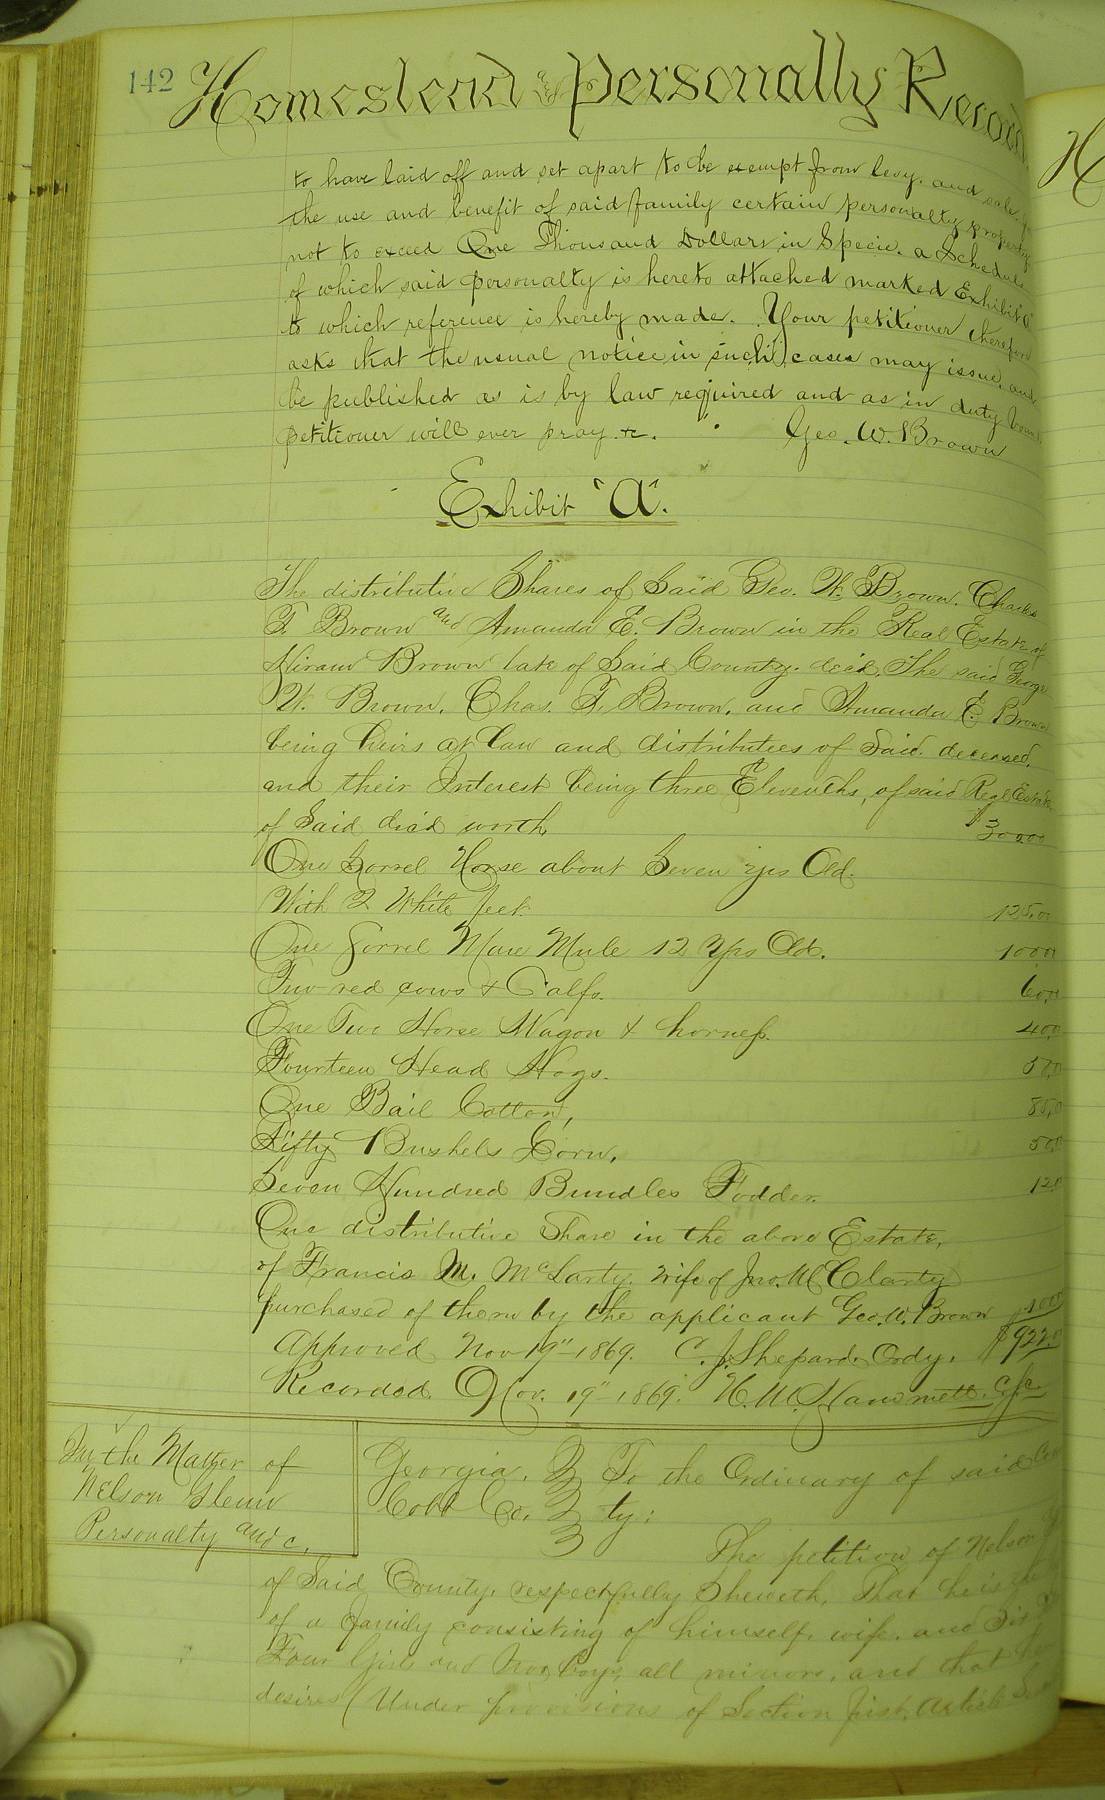 142
Homestead and Personally Record
to have laid off and set apart to be exempt from levy. and sale.
the use and benefit of said family certain personalty property
not to exceed One Thousand Dollars in Specie. a Schedule
of which said personalty is hereto attached marked Exhibit "A"
to which reference is hereby made. Your petitioner therefore
asks that the usual notice in such cases may issue, and
be published as is by law required and as in duty bound
petitioner will ever pray &c. Geo. W. Brown
Exhibit "A".
The distributive Shares of Said Geo. W. Brown. Charles
T. Brown and Amanda E. Brown in the Real Estate of
Hiram Brown late of Said County. dec'd. The said George
W. Brown. Chas. T. Brown. and Amanda E. Brown
being heirs at law and distributees of Said deceased.
and their Interest being three Elevenths, of said Real Estate
of Said dec'd worth $300.00
One Sorrel Horse about Seven yrs Old.
With 2 White feet. 125.00
One Sorrel Mare Mule 12 Yrs Old. 100.00
Two red cows & Calfs. 60.0
One Two Horse Wagon & horness. 40.0
Fourteen Head Hogs.
One Bail Cotton, 85.0
Fifty Bushels Corn. 50.0
Seven Hundred Bundles Fodder. 12.0
One distributive Share in the above Estate,
of Francis M. McLarty. wife of Jno. McClarty
purchased of them by the applicant Geo. W. Brown 100
Approved Nov 19" 1869. C. J. Shepard. Ordy. $922.0
Recorded Nov. 19" 1869. H. M. Hammett. C.S.C.
In the Matter of
Nelson Glenn
Personalty and c.
Georgia. To the Ordinary of said
Cobb Co. ty:
The petition of Nelson
of Said County. respectfully Sheweth, That he is
of a family consisting of himself. wife. and Six
Four Girls and two boys, all minors, and that he
desires (Under provisions of Section first. Article